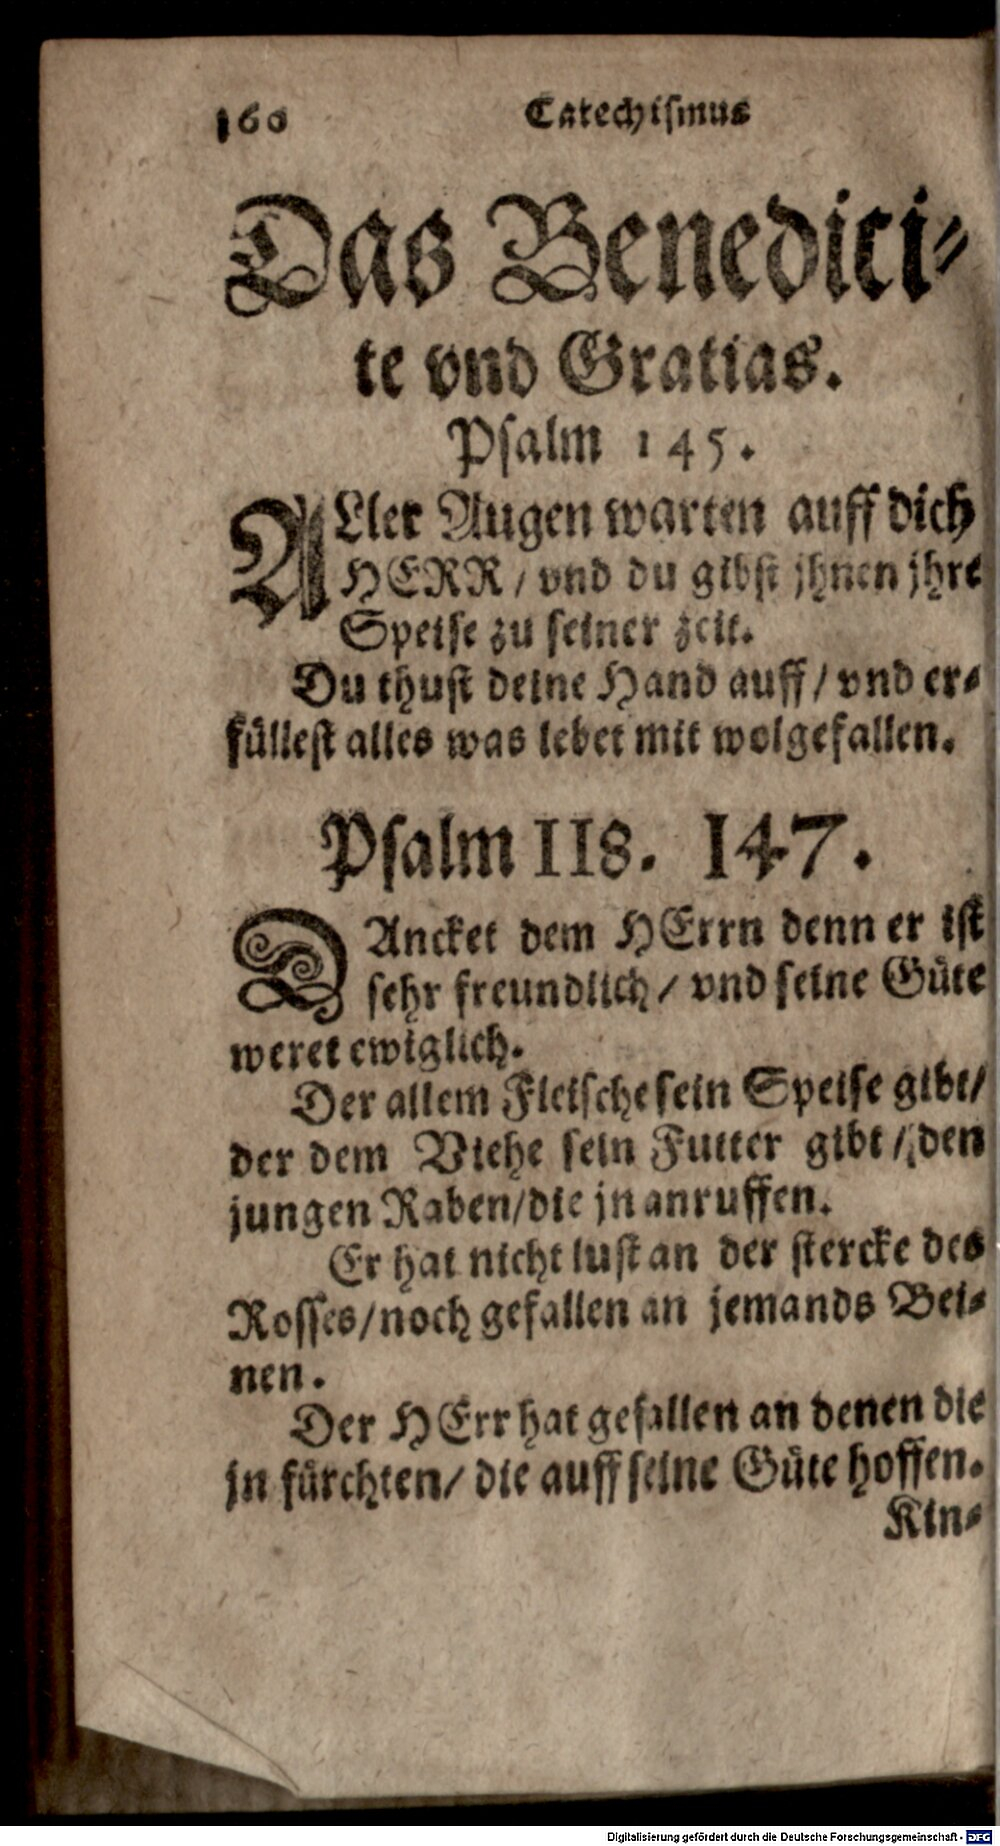 160 Catechismus
Das Benedici-
te vnd Gratias.
Psalm 145.
ALler Augen warten auff dich
HERR / vnd du gibst jhnen jhre
Speise zu seiner zeit.
Du thust deine Hand auff / vnd er-
füllest alles was lebet mit wolgefallen.
Psalm 118. 147.
DAncket dem HErrn denn er ist
sehr freundlich / vnd seine Güte
weret ewiglich.
Der allem Fleische sein Speise gibt /
der dem Viehe sein Futter gibt / den
jungen Raben / die jn anruffen.
Er hat nicht lust an der stercke des
Rosses / noch gefallen an jemands Bei-
nen.
Der HErr hat gefallen an denen die
jn fürchten / die auff seine Güte hoffen.
Kin-
Digitalisierung gefördert durch die Deutsche Forschungsgemeinschaft - DFG